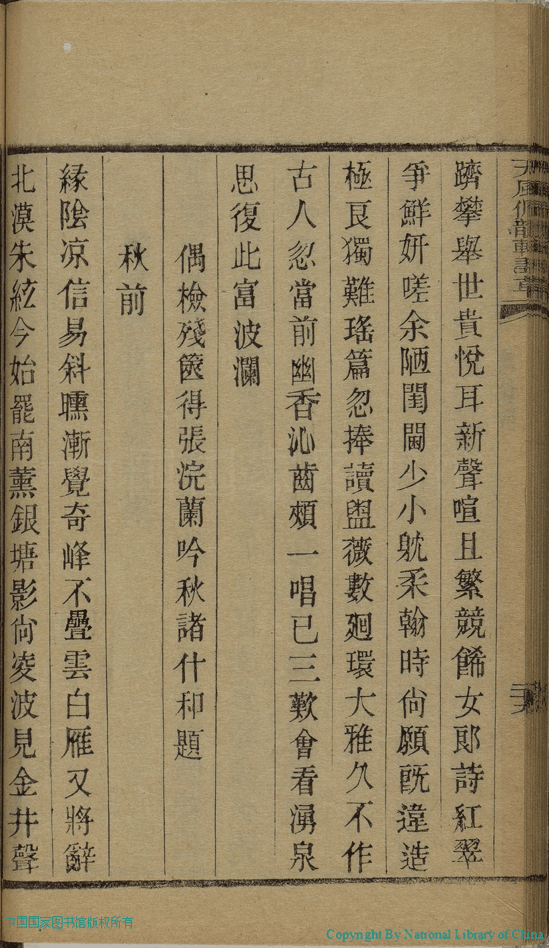 躋攀舉世貴悅耳新聲喧且繁競餙女郎詩紅翠
爭鮮妍嗟余陋閨閫少小躭柔翰時尙願旣違造
極良獨難瑤篇忽捧讀盥薇數廻環大雅久不作
古人忽當前幽香沁齒頰一唱已三歎會看湧泉
思復此富波瀾
偶檢殘篋得張浣蘭吟秋諸什和題
秋前
綠陰凉信易斜曛漸覺奇峰不疊雲白雁又將辭
北漠朱絃今始罷南薰銀塘影尙凌波見金井聲
中国国家图书馆版权所有
Copyright By National Library of China